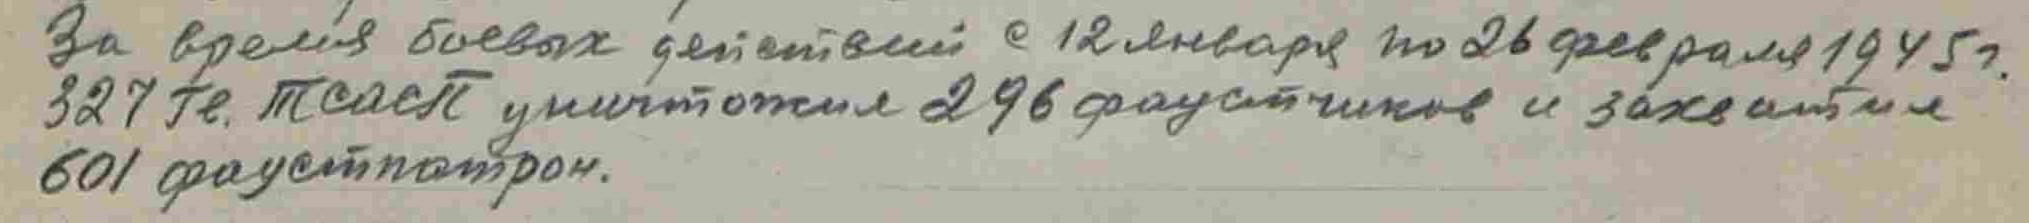 За время боевых действий с 12 января по 26 февраля 1945 г.
327 Гв. ТСАСП уничтожил 296 фаустчиков и захватил
601 фаустпатрон.